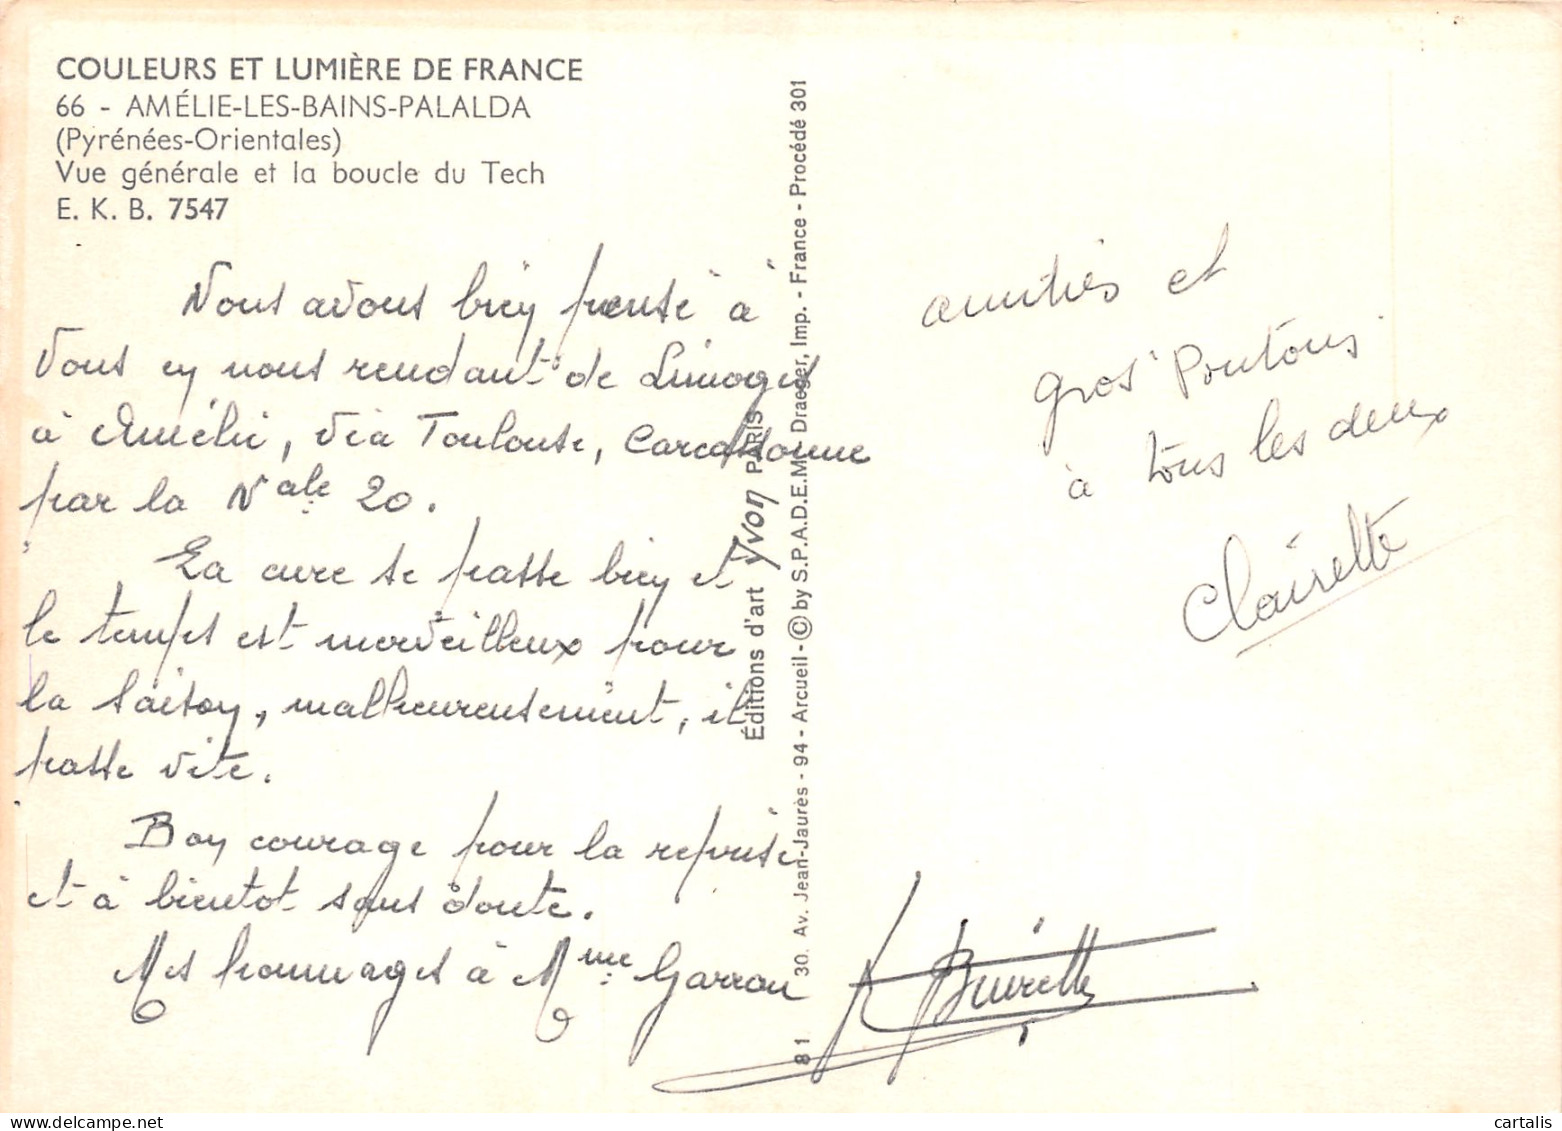 COULEURS ET LUMIÈRE DE FRANCE
66 - AMÉLIE-LES-BAINS-PALALDA
(Pyrénées-Orientales)
Vue générale et la boucle du Tech
E. K. B. 7547
Nous avons bien pensé à
vous en nous rendant de Limoges
à Amélie, via Toulouse, Carcassonne
par la Nale 20.
La cure se passe bien et
le temps est merveilleux pour
la saison, malheureusement, il
passe vite.
Bon courage pour la reprise
et à bientôt sans doute.
Mes hommages à Mme Garrou
Éditions d'art Yvon PARIS
81 30. Av. Jean-Jaurès - 94 - Arcueil - © by S.P.A.D.E.M. - Draeger, Imp. - France - Procédé 301
amitiés et
gros Poutous
à tous les deux
Clairette
www.cartalis.com
cartalis